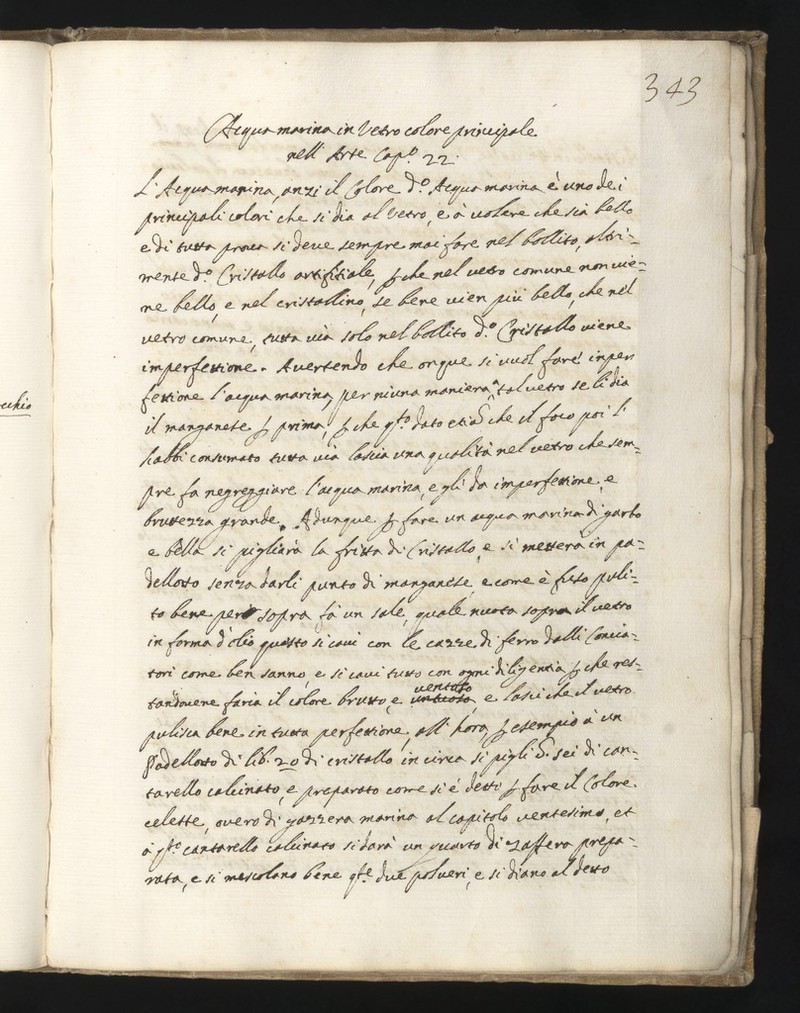 343
Acqua marina in Vetro colore principale
nell' Arte Cap.o 22.
L'Acqua marina, anzi il Colore d.o Acqua marina è uno dei
principali colori che si dia al Vetro, e à volere che sia bello
e di tutta prova si deve sempre mai fare nel bollito, altri=
mente d.o Cristallo artifitiale, p che nel vetro comune non vie=
ne bello, e nel cristallino, se bene vien più bello, che nel
vetro comune, tutta via solo nel bollito d.o Cristallo viene
imperfettione. Avertendo che ongue si vuol fare in per
fettione l'acqua marina, per niuna maniera à tal vetro se li dia
il manganese p prima, p che q.to dato etiã che il foco poi l'
habbi consumato tutta via lascia una qualità nel vetro che sem=
pre fa negreggiare l'acqua marina, e gli da imperfettione, e
bruttezza grande. Adunque p fare un acqua marina di garbo
e bella si pigliarà la fritta di Cristallo, e si metterà in pa=
dellotto senza darli punto di manganese, e come è fuso puli=
to bene però sopra fà un sale, quale nuota sopra il vetro
in forma d'olio questo si cavi con le cazze di ferro dalli Concia=
tori come ben sanno, e si cavi tutto con ogni diligentia p che res=
tandovene faria il colore brutto, e untuoso ventoso, e lasci che il vetro
pulisca bene in tutta perfettione, all' hora, p esempio à un
Padellotto di lib. 20 di cristallo in circa si pigli õ. sei di can=
tarello calcinato, e preparato come si é detto p fare il Colore
celeste, overo di gazzera marina al capitolo ventesimo, et
à q.to cantarello calcinato si darà un quarto di zaffera prepa=
rata, e si mescolano bene q.te due polveri, e si diano al detto
cchio